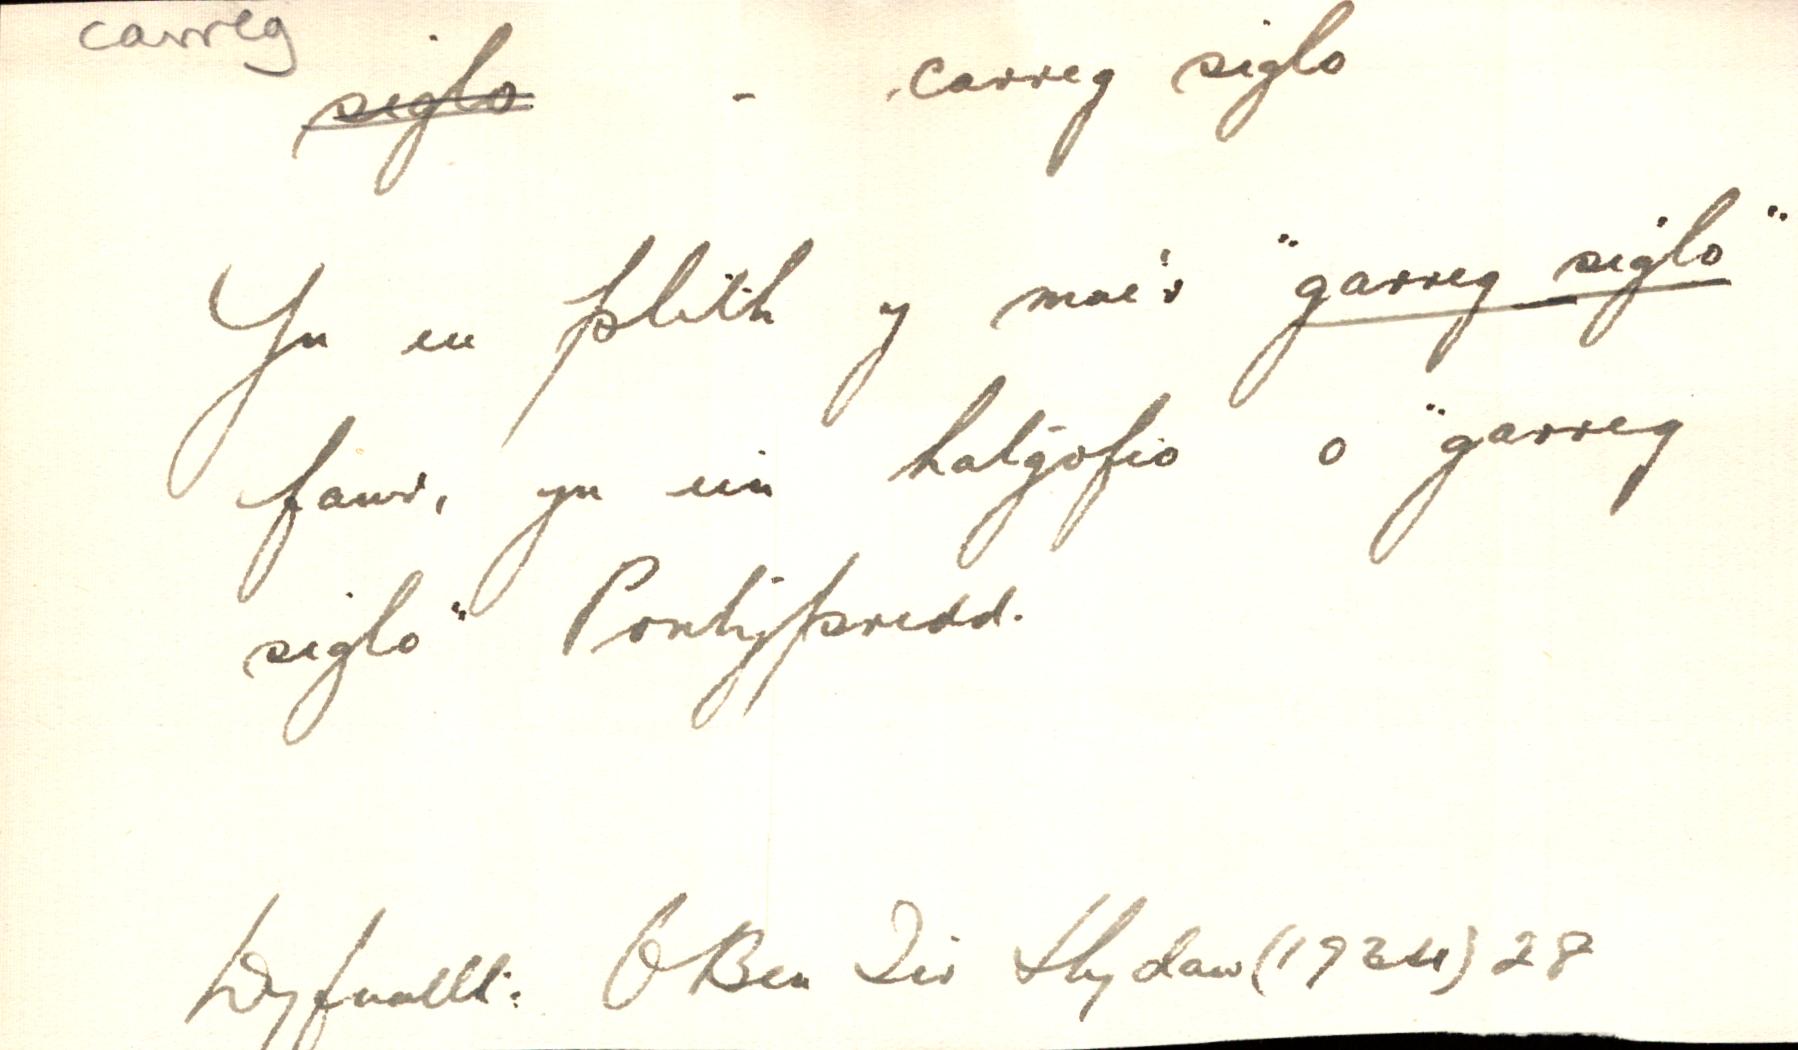 carreg
siglo - carreg siglo
Yn eu plith y mae'r "garreg siglo"
fawr, yn ein hatgofio o "garreg
siglo" Pontypridd.
Dyfnallt: O Ben Tir Llydaw (1934) 28